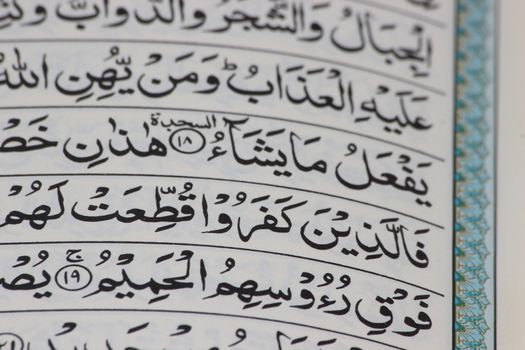 الْجِبَالُ وَالشَّجَرُ وَالدَّوَآبُّ
عَلَيْهِ الْعَذَابُ ؕ وَمَنْ يُّهِنِ اللّٰهُ
يَفْعَلُ مَا يَشَآءُ السجدة ۩ ﴿١٨﴾ هٰذٰنِ
فَالَّذِيْنَ كَفَرُوْا قُطِّعَتْ لَهُمْ
فَوْقِ رُءُوْسِهِمُ الْحَمِيْمُ ۚ ﴿١٩﴾